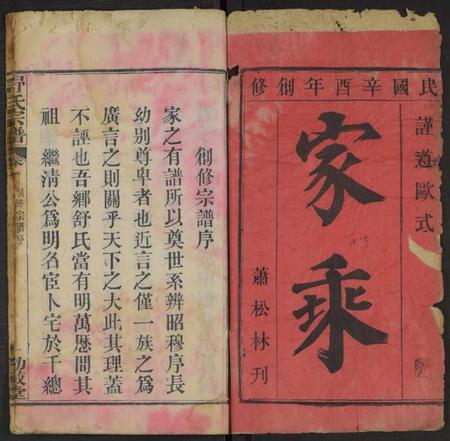 民國辛酉年創修
謹遵歐式
家乘
蕭松林刊
創修宗譜序
家之有譜所以奠世系辨昭穆序長
幼别尊卑者也近言之僅一族之爲
廣言之則關乎天下之大此其理蓋
不誣也吾鄉舒氏當有明萬厯間其
祖 繼清公爲明名宦卜宅於千總
舒氏宗譜
創修宗譜序